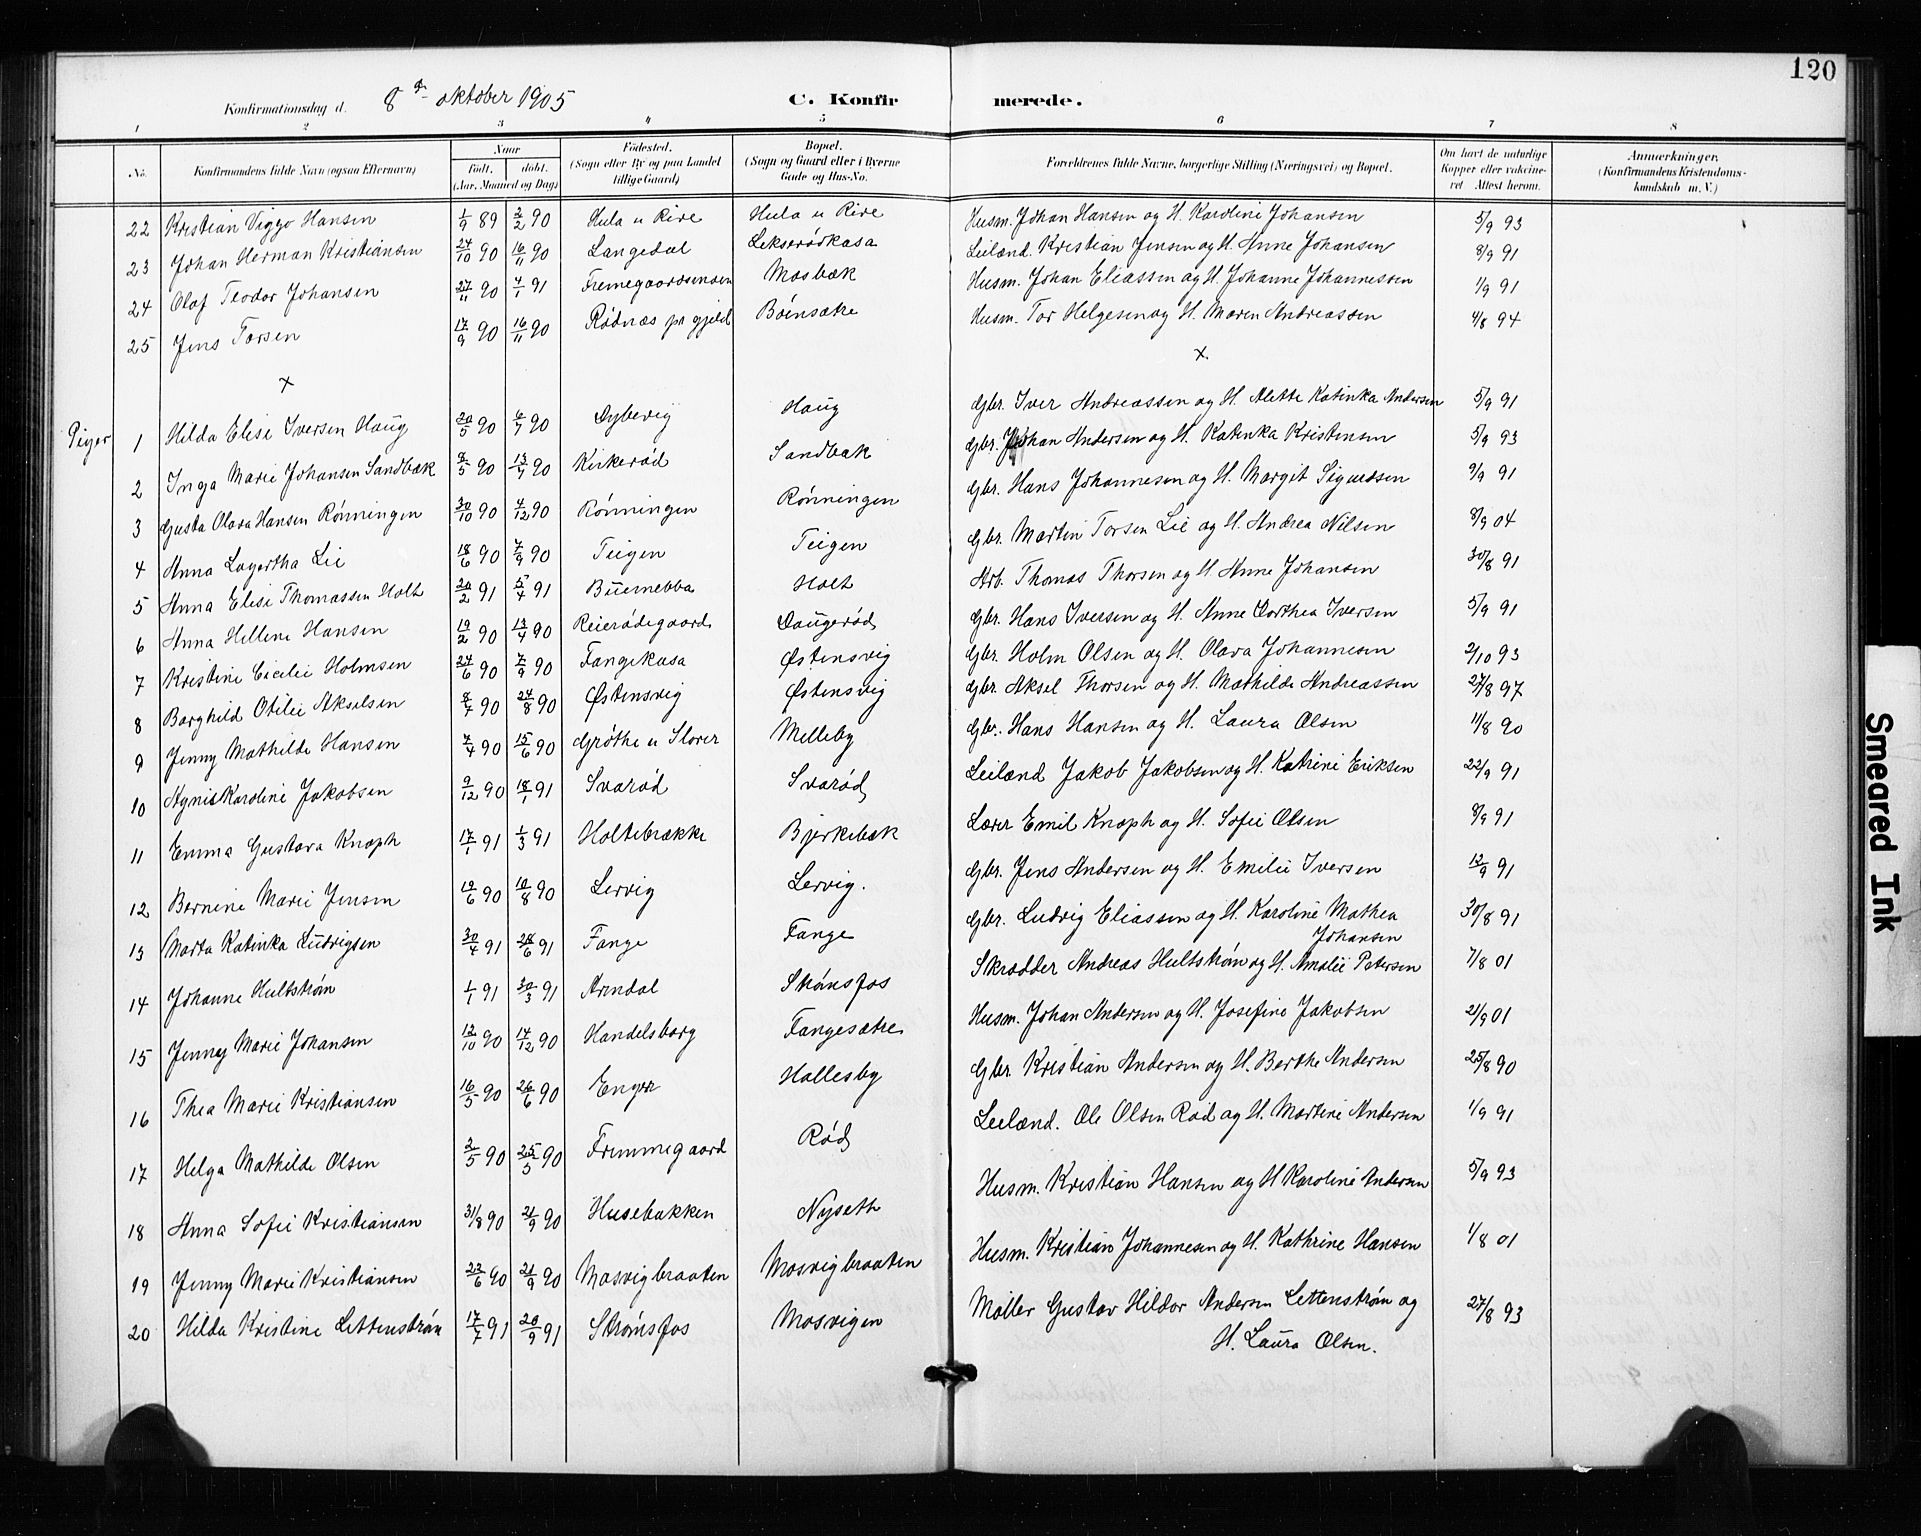 120
Konfirmationsdag d. 8de oktober 1905
C. Konfirmerede.
1 2 3 4 5 6 7 8
No. Konfirmandens fulde Navn (ogsaa Efternavn) Naar født, døbt. (Aar, Maaned og Dag) Fødested. (Sogn eller By og paa Landet tillige Gaard) Bopæl. (Sogn og Gaard eller i Byerne Gade og Hus-No. Forældrenes fulde Navne, borgerlige Stilling (Næringsvei) og Bopæl. Om havt de naturlige Kopper eller vakcineret Attest herom. Anmærkninger. (Konfirmandens Kristendomskundskab m. V.)
22 Kristian Viggo Hansen 1/9 89 2/2 90 Hula u Rive Hula u Rive Husm. Johan Hansen og H. Karoline Johansen 5/9 93
23 Johan Herman Kristiansen 24/10 90 16/11 90 Langedal Lekserødkasa Leilænd. Kristian Jensen og H. Anne Johansen 8/9 91
24 Olaf Teodor Johansen 27/11 90 4/1 91 Mosbæk Husm. Johan Eliassen og H. Johanne Johannessen 1/9 91
25 Jens Torsen 17/9 90 16/11 90 Rødnæs pr gjeld Bøensætre Husm. Tor Helgesen og H. Maren Andreassen 4/8 94
x x
Piger
1 Hilda Elise Iversen Haug 20/5 90 6/7 90 Dybevig Haug Gbr. Iver Andreassen og H. Alette Katinka Andersen 5/9 91
2 Inga Marie Johansen Sandbæk 8/5 90 13/7 90 Kirkerød Sandbæk Gbr. Johan Andersen og H. Katinka Kristensen 5/9 93
3 Gusta Olava Hansen Rønningen 30/10 90 7/12 90 Rønningen Rønningen Gbr. Hans Johannesen og H. Margit Sigurdsen 9/9 91
4 Anna Lagertha Lie 18/6 90 7/9 90 Teigen Teigen Gbr. Martin Torsen Lie og H. Andrea Nilsen 8/9 04
5 Anna Elise Thomassen Holt 20/2 91 5/4 91 Buernebba Holt Arb. Thomas Thorsen og H. Anne Johansen 30/8 91
6 Anna Helline Hansen 19/2 90 13/4 90 Reierødegaard Daugerød Gbr. Hans Iversen og H. Anne Dorthea Iversen 5/9 91
7 Kristine Cicilie Holmsen 24/6 90 7/9 90 Fangekasa Østensvig Gbr. Holm Olsen og H. Olava Johannesen 2/10 93
8 Borghild Otilie Akselsen 8/7 90 24/8 90 Østensvig Østensvig Gbr. Aksel Thorsen og H. Mathilde Andreassen 27/8 97
9 Jenny Mathilde Hansen 7/4 90 15/6 90 Grøthe u Slorer Melleby Gbr. Hans Hansen og H. Laura Olsen 11/8 90
10 Agnes Karoline Jakobsen 9/12 90 18/1 91 Svarød Svarød Leilænd Jakob Jakobsen og H. Katrine Eriksen 22/9 91
11 Emma Gustava Knoph 17/1 91 1/3 91 Holtebrække Bjerkebæk Lærer Emil Knoph og H. Sofie Olsen 8/9 91
12 Bernine Marie Jensen 19/6 90 10/8 90 Lervig Lervig. Gbr. Jens Andersen og H. Emilie Iversen 12/9 91
13 Marta Katinka Ludvigsen 30/4 91 28/6 91 Fange Fange Gbr. Ludvig Eliassen og H. Karoline Mathea Johansen 30/8 91
14 Johanne Hultstrøm 1/1 91 30/3 91 Arendal Strømsfos Skrædder Andreas Hultstrøm og H. Amalie Petersen 7/8 01
15 Jenny Marie Johansen 12/10 90 14/12 90 Handelsborg Fangesætre Husm. Johan Andersen og H. Josefine Jakobsen 21/9 01
16 Thea Marie Kristiansen 16/5 90 26/6 90 Enger Hallesby Gbr. Kristian Andersen og H. Berthe Andersen 25/8 90
17 Helga Mathilde Olsen 2/5 90 25/5 90 Fremmegaard Rød Leilænd. Ole Olsen Rød og H. Martine Andersen 1/9 91
18 Anna Sofie Kristiansen 31/8 90 21/9 90 Husebakken Nyseth Husm. Kristian Hansen og H Karoline Andersen 5/9 93
19 Jenny Marie Kristiansen 23/6 90 21/9 90 Mosvigbraaten Mosvigbraaten Husm. Kristian Johannesen og H. Kathrine Hansen 1/8 01
20 Hilda Kristine Lettenstrøm 17/7 91 20/9 91 Strømsfos Mosvigen Møller Gustav Hildor Andersen Lettenstrøm og 27/8 93
H. Laura Olsen.
Smeared Ink